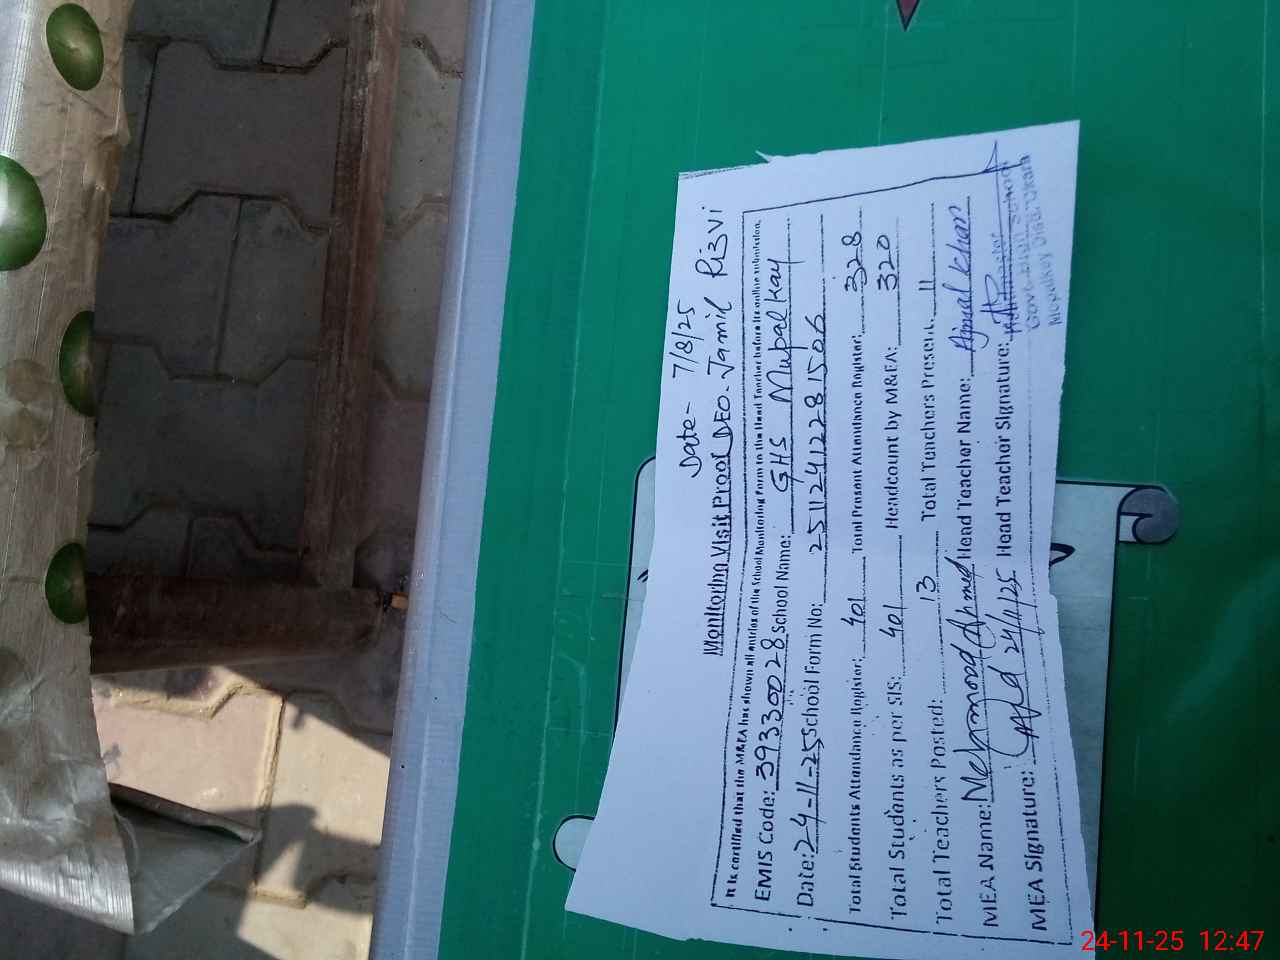 Date- 7/8/25
Monitoring Visit Proof DEO-Jamil Rizvi
It is certified that the M&EA has shown all entries of the School Monitoring Form to the Head Teacher before its online submission.
EMIS Code: 39330028 School Name: GHS Mupalkay
Date: 24-11-25 School Form No: 25112412281506
Total Students Attendance Register: 401 Total Present Attendance Register: 328
Total Students as per SIS: 401 Headcount by M&EA: 320
Total Teachers Posted: 13 Total Teachers Present: 11
MEA Name: Mehmood Ahmed Head Teacher Name: Ajmal Khan
MEA Signature: 24/11/25 Head Teacher Signature:
Headmaster
Govt. High School
Mopalkey Distt. Okara
24-11-25 12:47